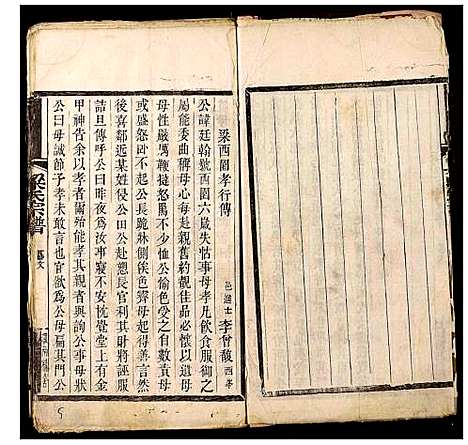 梁西園孝行傳
邑進士李曾馥西季
公諱廷翰號西園六歲失怙事母孝凡飲食服御之
屬能委曲稱母心每赴親舊約觀佳品必懷以遺母
母性嚴厲鞭撻怒罵不少貸公愉色受之自數責母
或盛怒囚不起公長跪牀側俟色霽母起得善言然
後喜鄰近某姓仰公公赴愬長官利其財將誣服
詰旦傳呼公曰昨夜為汝事寢不安恍覺堂上有金
甲神告余以孝者爾殆能孝其親者與詢公事母狀
公曰母誠節子孝未敢言也官欲為公母扁其門公
梁氏宗譜